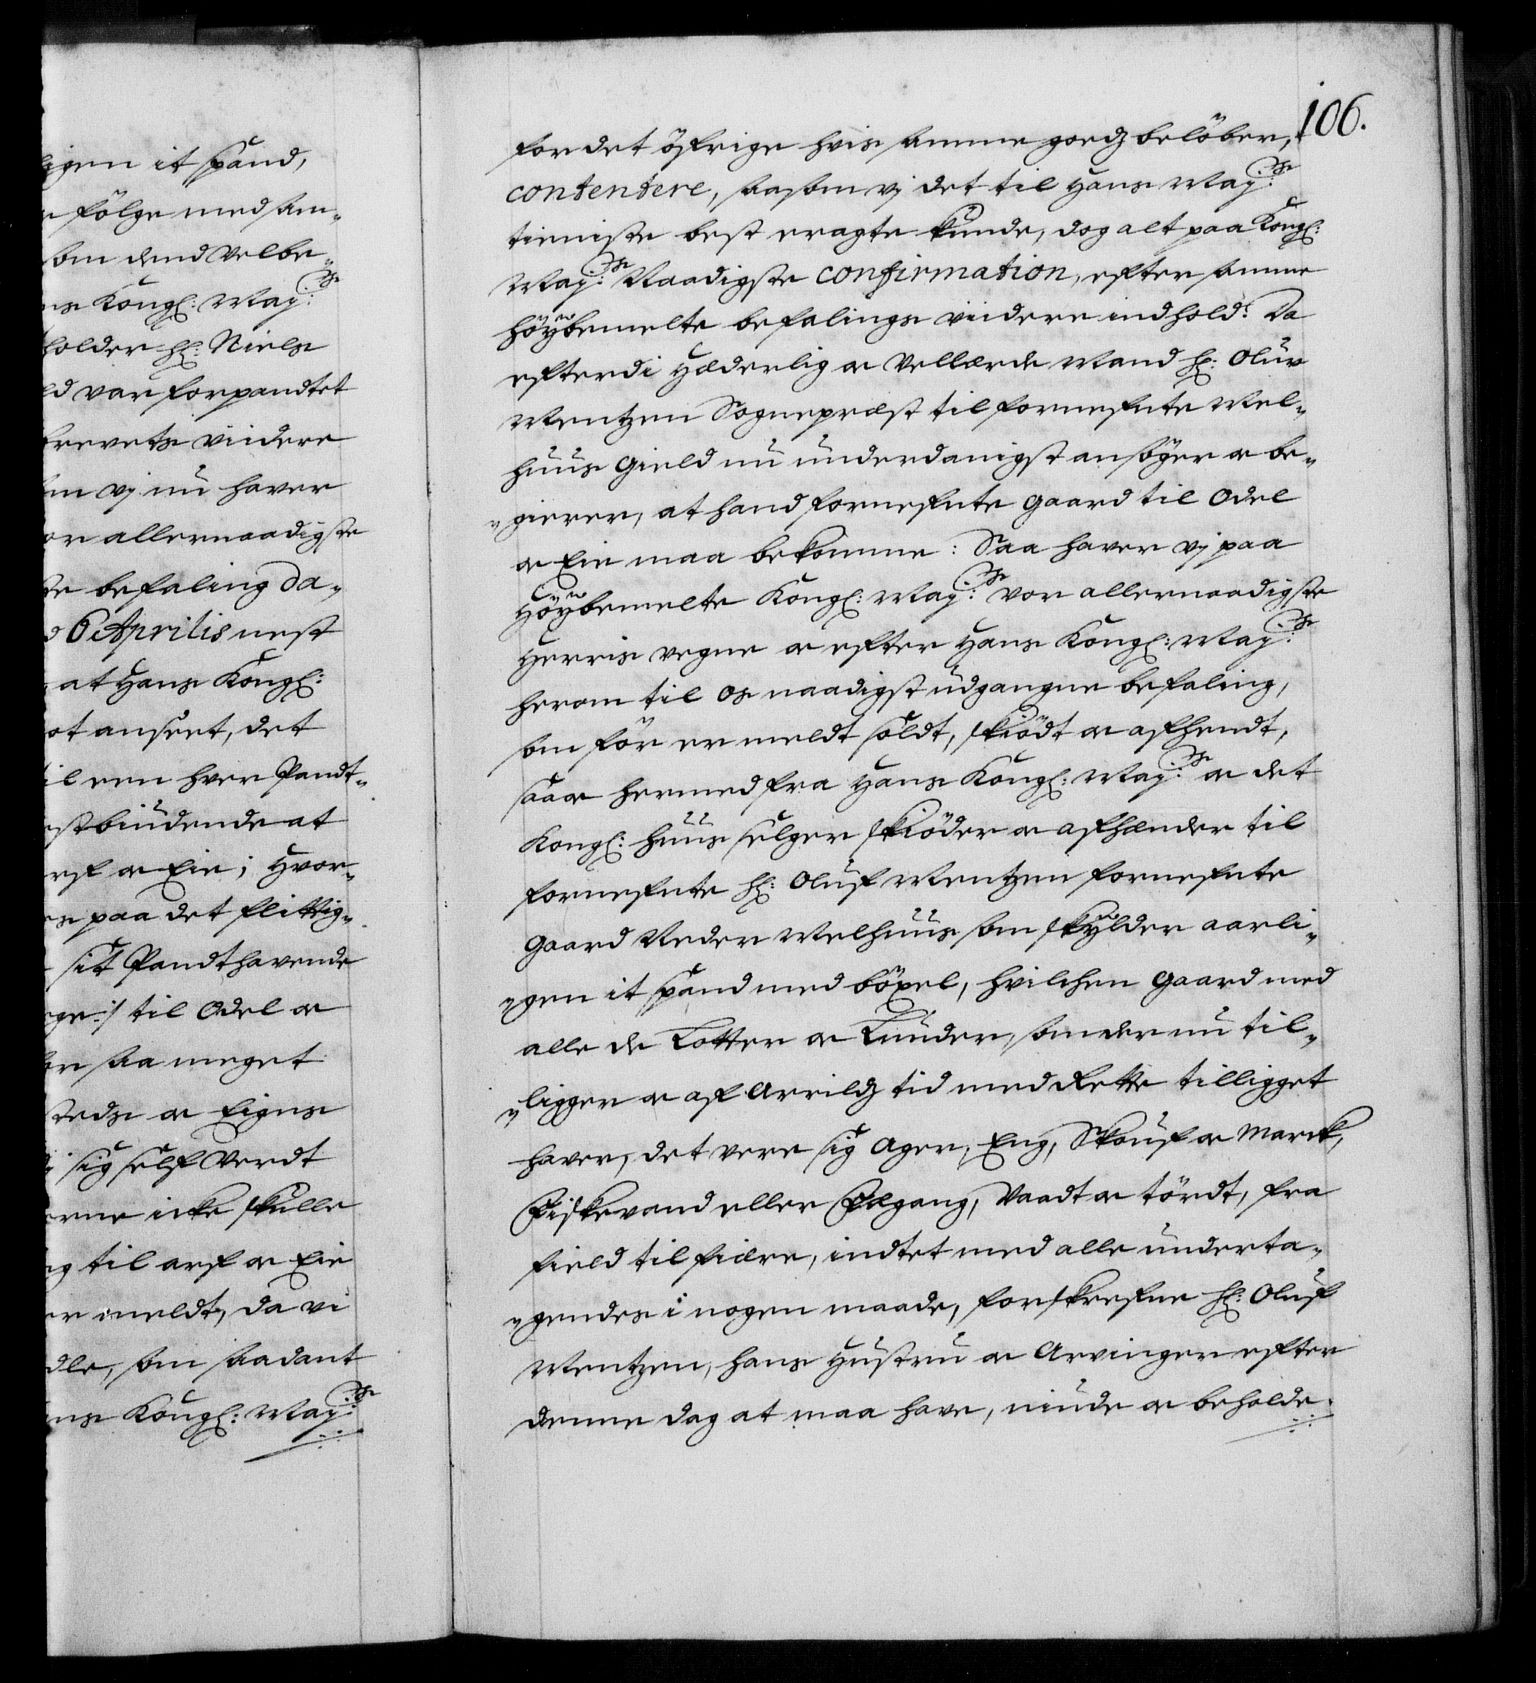 igen it spand,
følge med sam¬
som dend Velbe¬
ns Kongl: May:ts
holder Hr: Niels
ld var forpandtet
brevets viidere
om vj nu haver
or allernaadigste
te befaling da¬
d 6 Aprilis nest
at Hans Kongl:
ot anseet, det
til een hver Pandt¬
stbiudende at
rf oc Eie; hvor¬
es paa det flittig¬
sit Pandthavende
ge:/ til Odel oc
er saa meget
steds oc Eigns
j sig self Verdt
erne icke skulle
ng til arf oc Eie
er meldt, da vi
dle, som saadant
ns Kongl: May:ts
106.
for det öfrige hvis samme goedz belöber,
contentere, saasom vj det til Hans May:ts
tieniste best eragte kunde, dog alt paa Kongl:
May:ts Naadigste confirmation, efter samme
höybemelte befalings viidere indhold: Da
efterdi Hæderlig oc Vellærde Mand Hr: Oluv
Mentzen Sognepræst til fornefnte Mel¬
huus Gield nu underdanigst ansöger oc be¬
gierer, at hand fornefnte Gaard til Odel
oc Eie maa bekomme: Saa haver vj paa
Höybemelte Kongl: May:ts vor allernaadigste
Herris vegne oc efter Hans Kongl: May:ts
herom til os naadigst udgangne befaling,
som för er meldt soldt, skiödt oc afhendt,
saa oc hermed fra Hans Kongl: May:ts oc det
Kongl: huus selger skiöder oc afhænder til
fornefnte Hr: Oluf Mentzen fornefnte
Gaard Neder Melhuus som skylder aarli¬
gen it spand med böxel, hvilchen Gaard med
alle de Lotter oc Lunder som der nu til¬
ligger oc af Arrildz tid med Rette tilligget
haver, det vere sig Ager, Eng, Skouf oc Marck,
Fiskevand eller Fægang, Vaadt oc tördt, fra
field til fiære, indtet med alle underta¬
gendes i nogen maade, forskrefne Hr: Oluf
Mentzen, hans Hustru oc Arvinger efter
denne dag at maa have, niude oc beholde